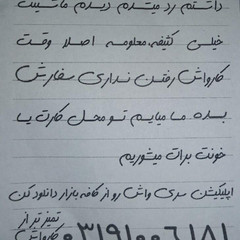 داشتم رد میشدم دیدم ماشینت
خیلی کثیفه معلومه اصلا وقت
کارواش رفتن نداری سفارش
بده ما میایم تو محل کارت یا
خونت برات میشوریم
اپلیکیشن سری واش رو از کافه بازار دانلود کن
تمیز تر از
کارواش
۰۳۱۹۱۰۰۶۱۸۱